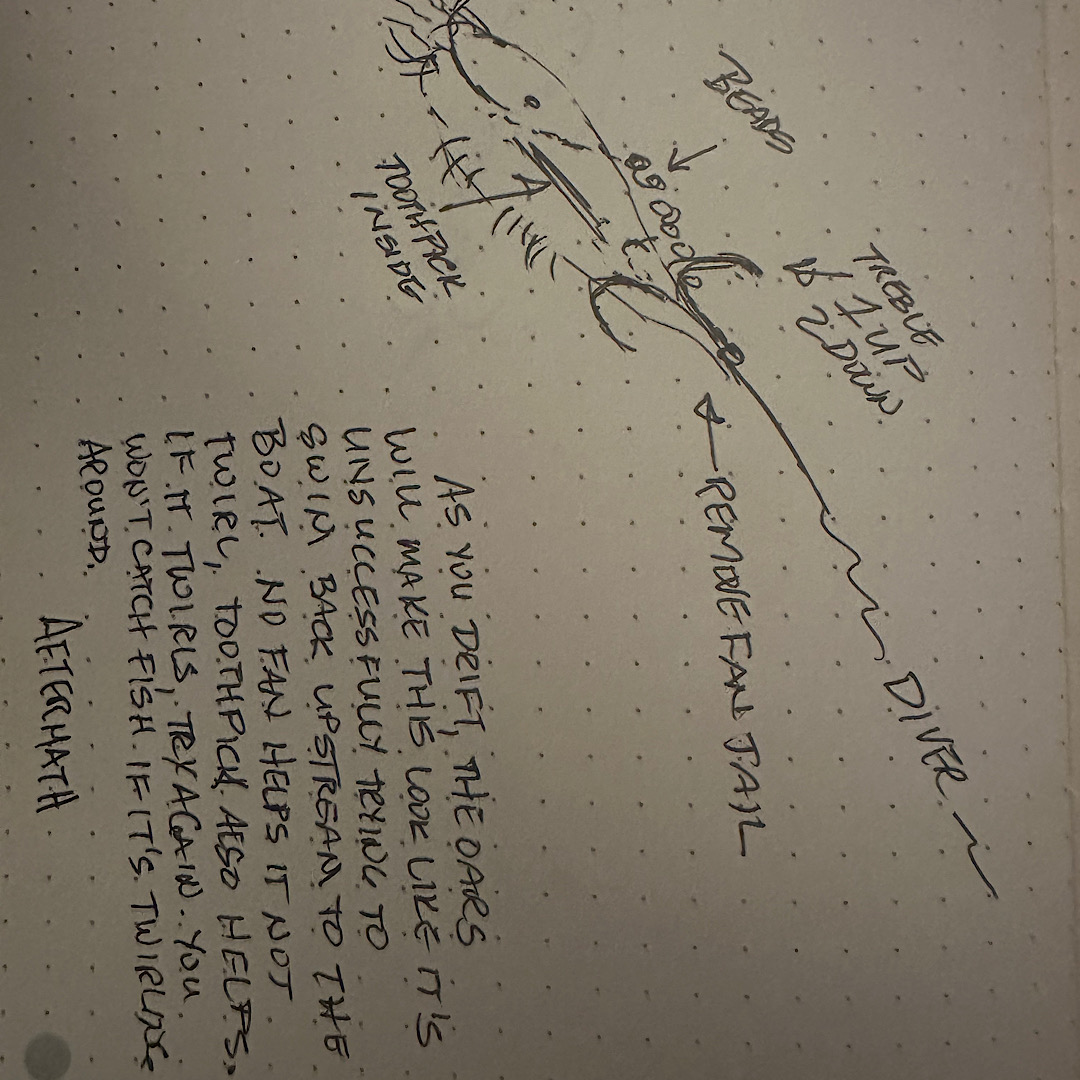 BEADS
TREBLE
1 UP
2 DOWN
TOOTHPACK
INSIDE
A
← REMOVE FAN TAIL
DIVER
AS YOU DRIFT, THE OARS
WILL MAKE THIS LOOK LIKE IT'S
UNSUCCESSFULLY TRYING TO
SWIM BACK UPSTREAM TO THE
BOAT. NO FAN HELPS IT NOT
TWIRL, TOOTHPICK ALSO HELPS.
IF IT TWIRLS, TRY AGAIN. YOU
WON'T CATCH FISH IF IT'S TWIRLING
AROUND.
AFTERMATH